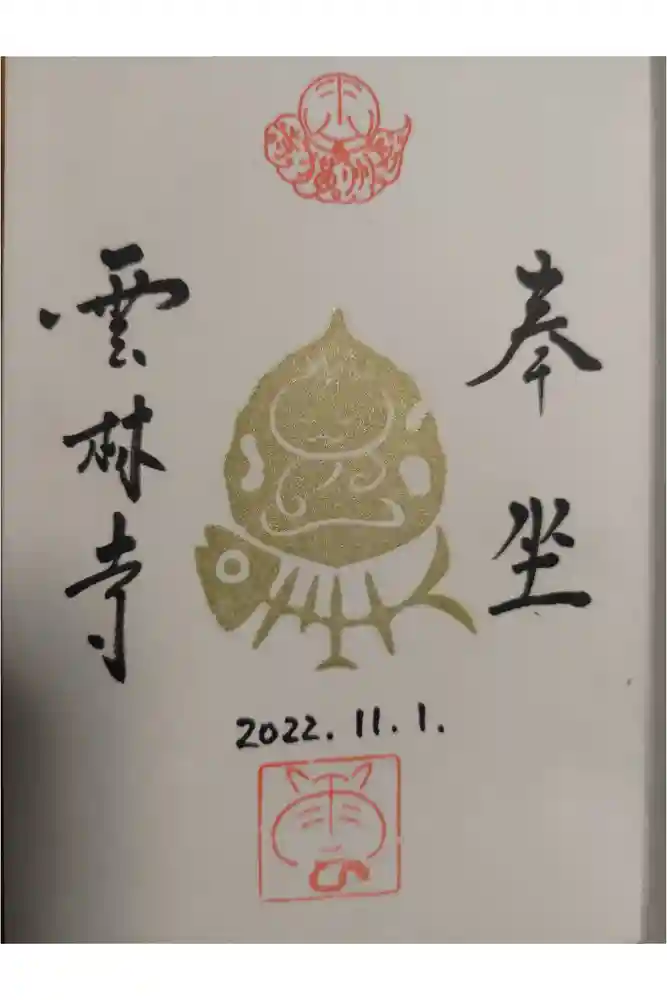 奉坐
雲林寺
2022.11.1.